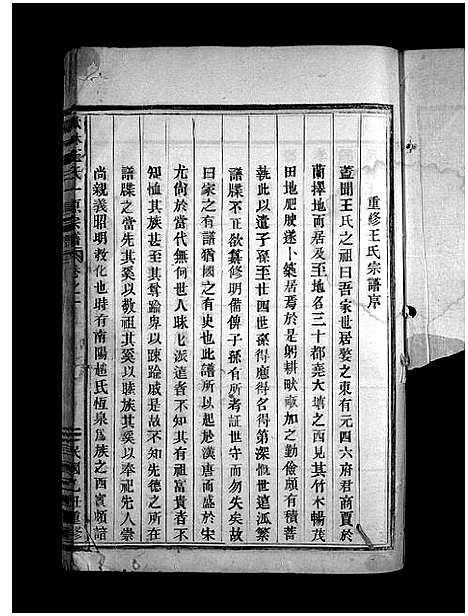 重修王氏宗譜序
蓋聞王氏之祖曰吾家世居婺之東有元四六府君商賈於
蘭擇地而居及至地名三十都堯大塘之西見其竹木暢茂
田地肥腴遂卜築居焉於是躬耕畎畝加之勤儉頗有積蓄
執此以遺子孫至廿四世孫得應得名得第深惟世遠派繁
譜牒不正欲纂修明備俾子孫有所考証世守而勿失矣故
曰家之有譜猶國之有史也此譜所以起於漢唐而盛於宋
尤尚於當代無何世人昧乎派遠者不知其有祖富貴者不
知恤其族甚至尊卑以疎踰戚是故不知先德之所在
譜牒之當先其奚以敬祖其奚以睦族其奚以奉祀先人崇
尚親義昭明教化也時有南陽趙氏恆泉為族之西賓頗諳
宗譜 卷之十
民國乙丑重修